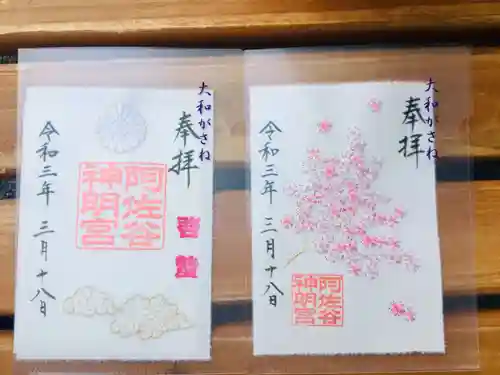 大和がさね
奉拝
阿佐谷
神明宮
啓蟄
令和三年 三月十八日
大和がさね
奉拝
阿佐谷
神明宮
令和三年 三月十八日